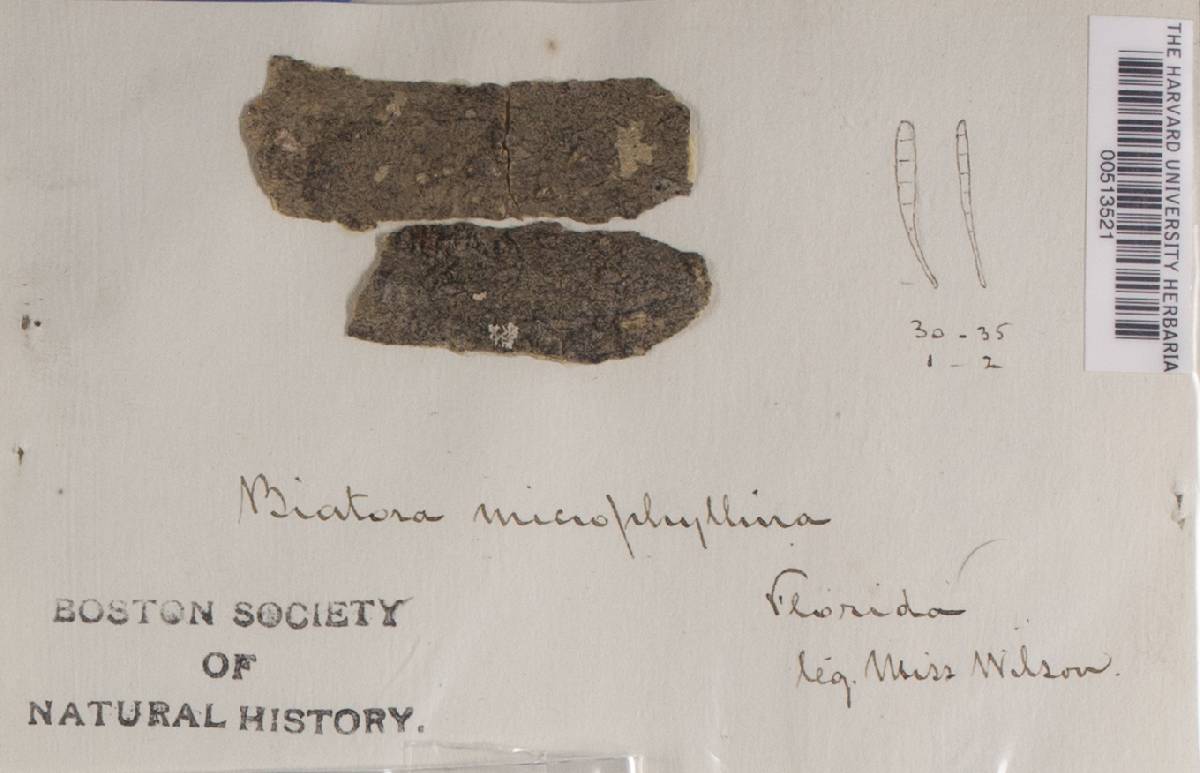 THE HARVARD UNIVERSITY HERBARIA
00513521
30 - 35
1 - 2
Biatora microphyllina
Florida
leg. Miss Wilson.
BOSTON SOCIETY
OF
NATURAL HISTORY.